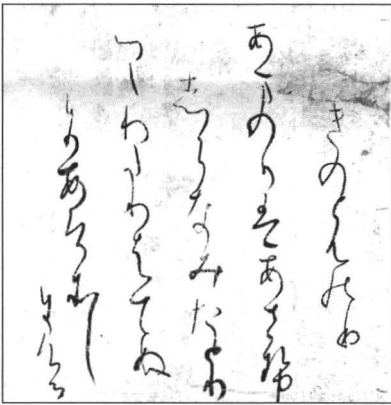 きのとものり
あまのかはあさせ
しらなみたとり
つゝわたりはてね
はあけそし
にける